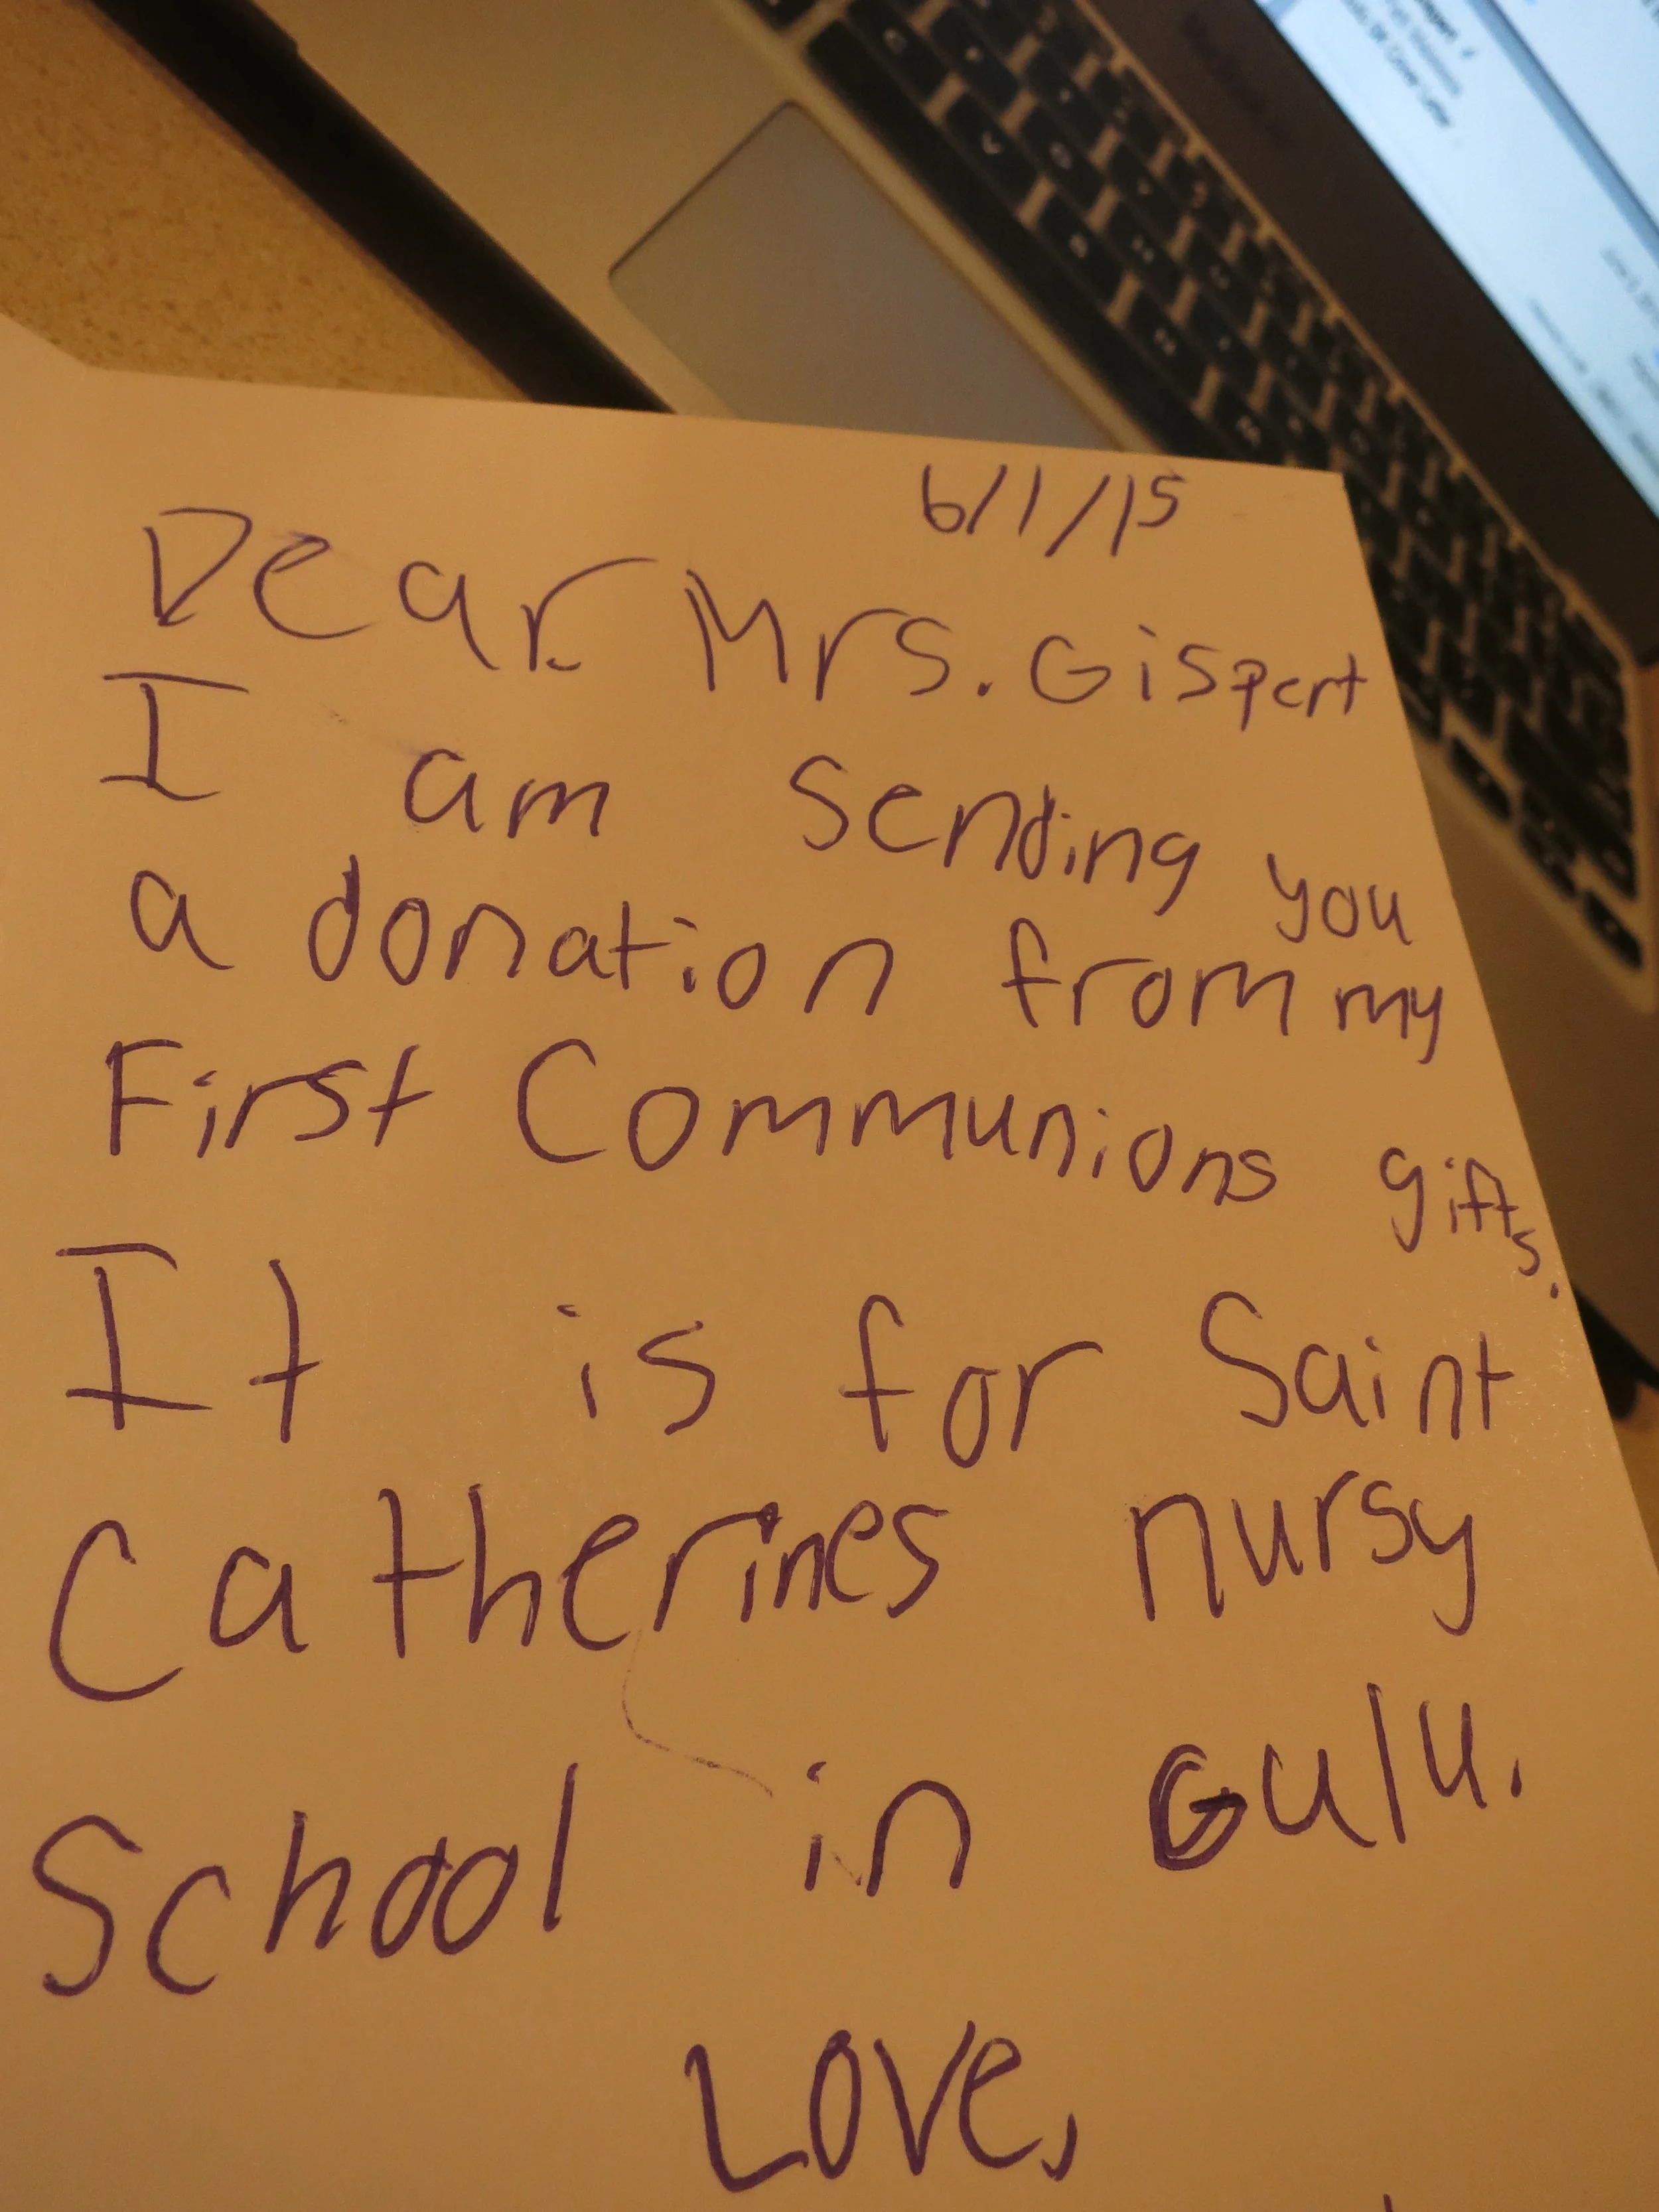 6/1/15
Dear Mrs. Gispert
I am sending you
a donation from my
First Communions gifts.
It is for Saint
Catherines nursy
School in Gulu.
Love,